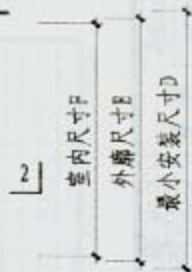 2
室内尺寸F
外廓尺寸E
最小安装尺寸D